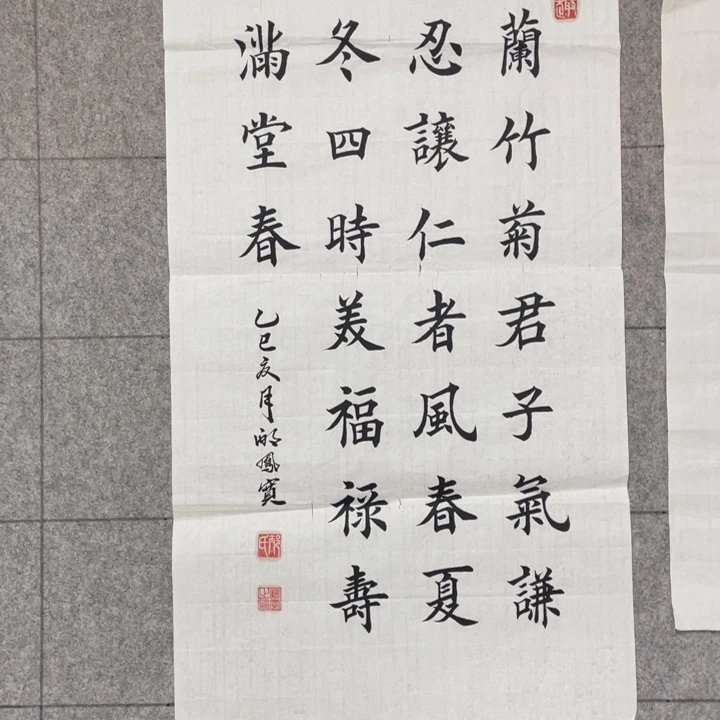 蘭竹菊君子氣謙
忍讓仁者風春夏
冬四時美福禄壽
滿堂春
乙巳月鳳寶